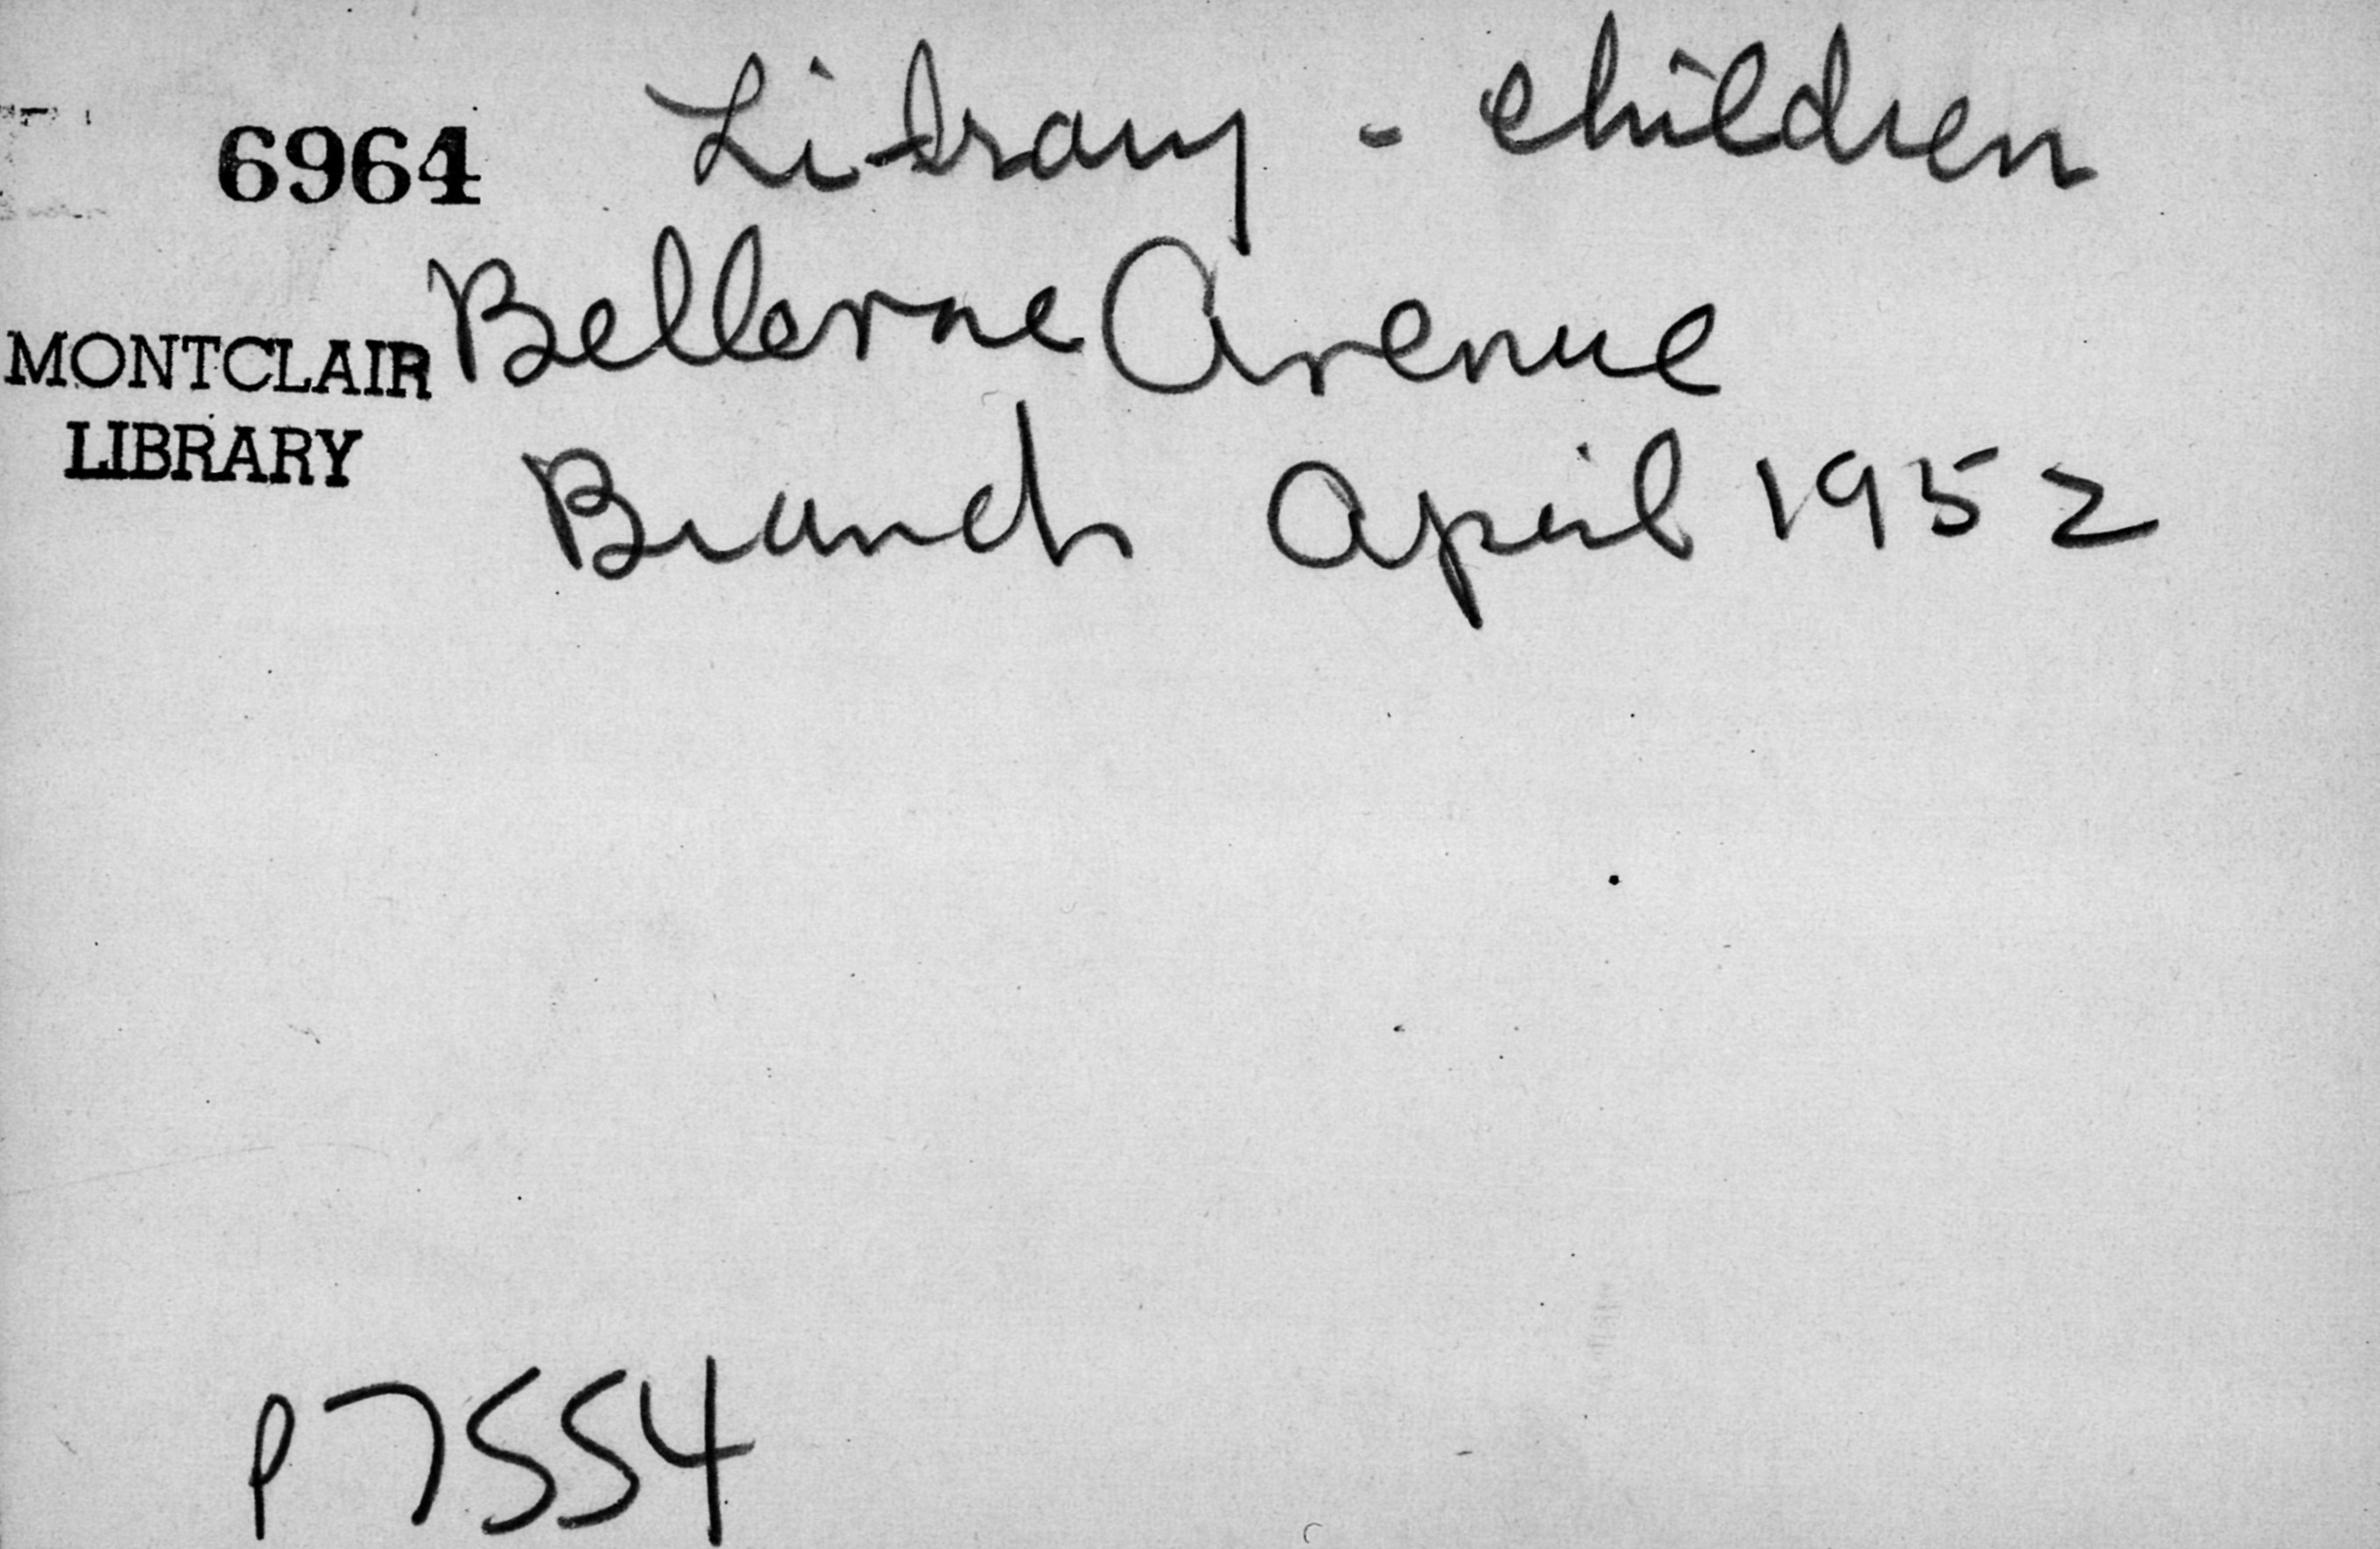 6964 Library - children
Bellevue Avenue
MONTCLAIR
LIBRARY
Branch April 1952
P7554